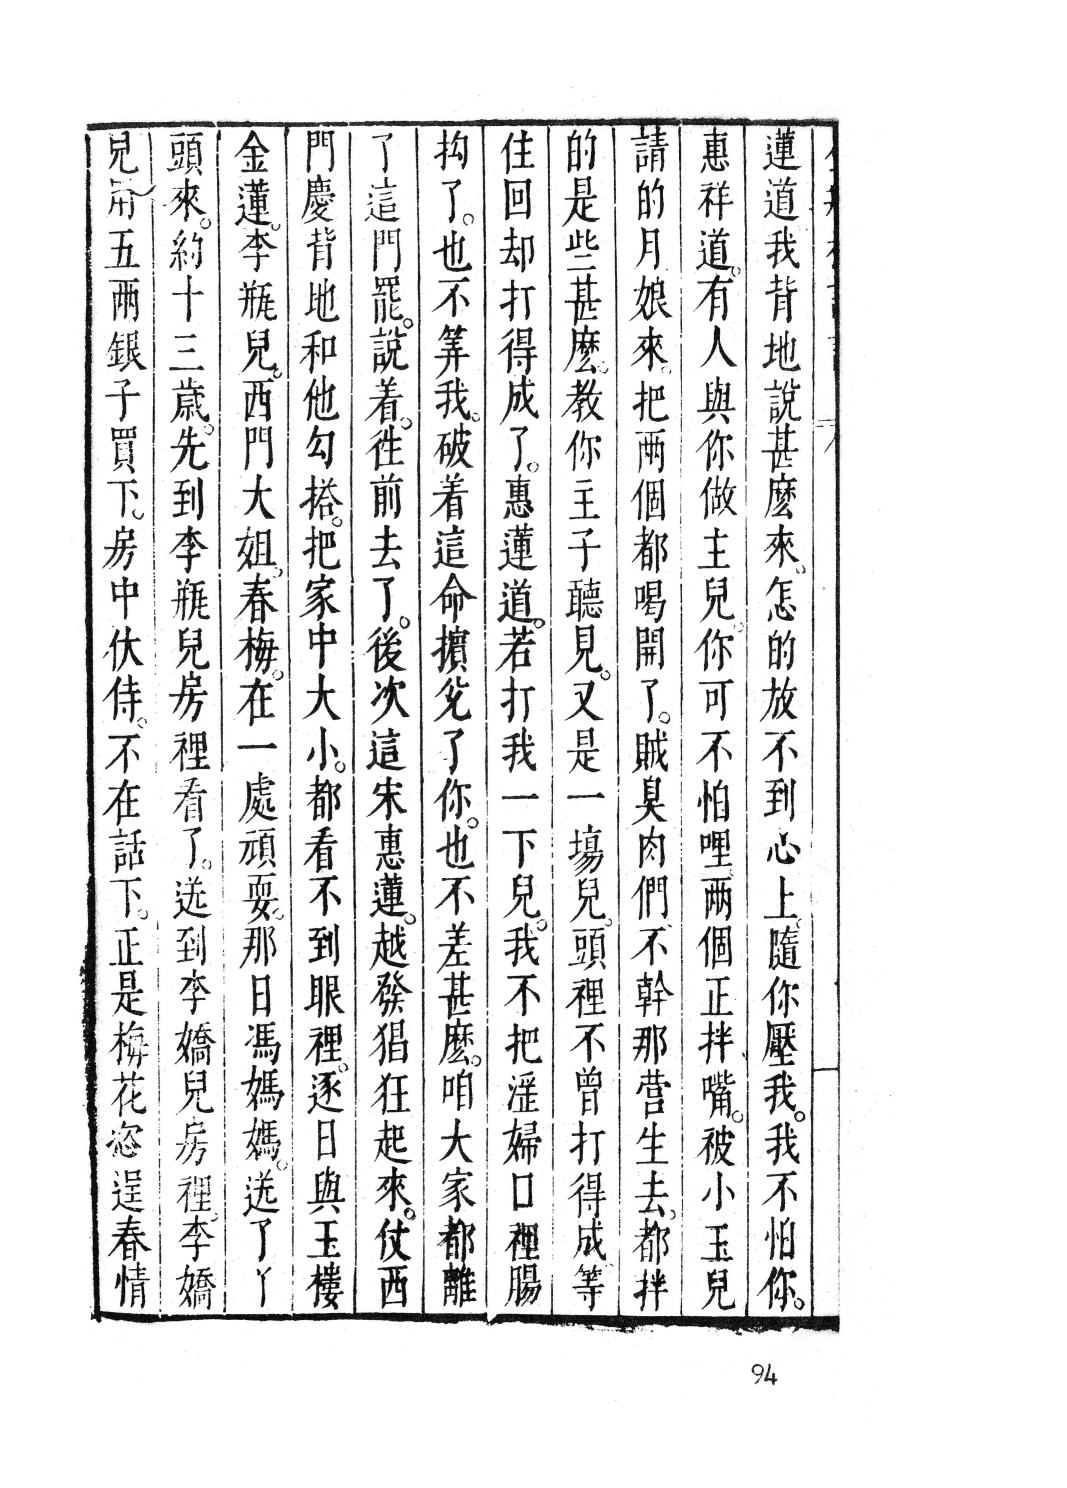 蓮道我背地說甚麽來。怎的放不到心上。隨你壓我。我不怕你。
惠祥道。有人與你做主兒。你可不怕哩。兩個正拌嘴。被小玉兒
請的月娘來。把兩個都喝開了。賊臭肉們。不幹那營生去。都拌
的是些甚麽。教你主子聽見。又是一塲兒。頭裡不曾打得成。等
住回却打得成了。惠蓮道。若打我一下兒。我不把淫婦口裡腸
抅了。也不筭我。破着這命擯兌了你。也不差甚麽。咱大家都離
了這門罷。說着。徃前去了。後次這宋惠蓮。越發猖狂起來。仗西
門慶背地和他勾搭。把家中大小。都看不到眼裡。逐日與玉樓
金蓮。李瓶兒。西門大姐。春梅。在一處頑耍。那日馮媽媽。送了丫
頭來。約十三歲。先到李瓶兒房裡看了。送到李嬌兒房裡。李嬌
兒用五兩銀子買下。房中伏侍。不在話下。正是梅花恣逞春情
94